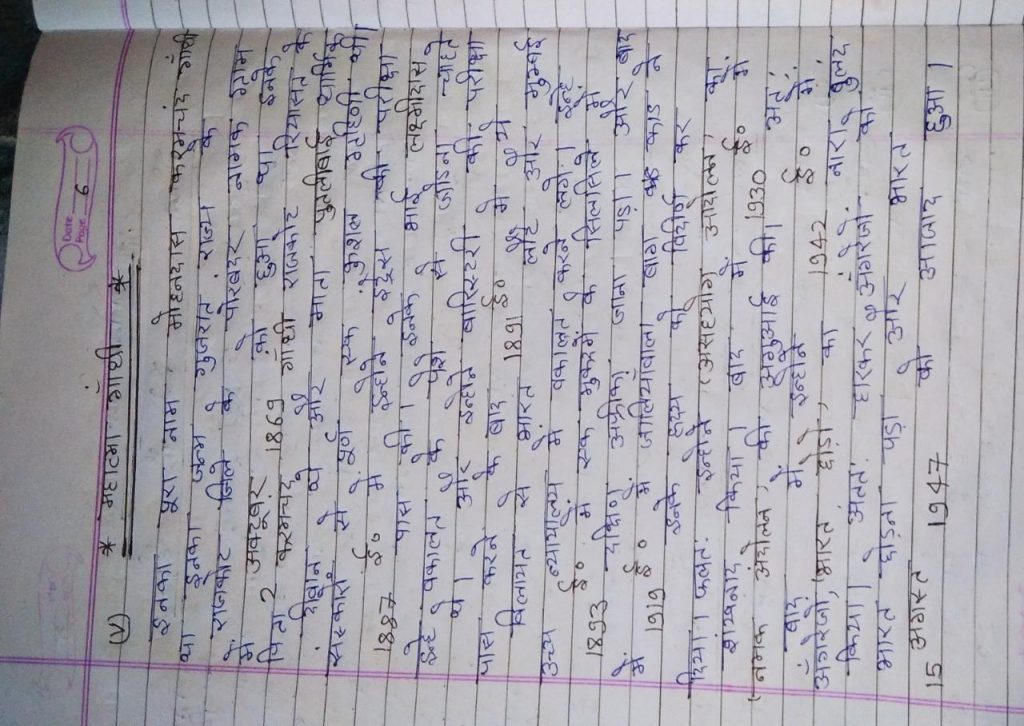 Date
Page 6
(V) * महात्मा गाँधी *
इनका पूरा नाम मोहनदास करमचंद गाँधी
था इनका जन्म गुजरात राज्य के
राजकोट जिले के पोरबंदर नामक ग्राम
में 2 अक्टूबर 1869 को हुआ था इनके
पिता करमचंद गाँधी राजकोट रियासत के
दीवान थे और माता पुतलीबाई धार्मिक
संस्कारों से पूर्ण एक कुशल गृहिणी थी।
1887 ई० में इन्होंने इंट्रेंस की परीक्षा
पास की। इनके भाई लक्ष्मीदास ने
इन्हें वकालत के पेशे से जोड़ना चाहते
थे। और इन्होंने बारिस्टरी की परीक्षा
पास करने के बाद 1891 ई० में ये
विलायत से भारत लौटे और मुम्बई
उच्च न्यायालय में वकालत करने लगे।
1893 ई० में एक मुकदमें के सिलसिले में इन्हें
दक्षिण अफ्रीका जाना पड़ा। और बाद
में 1919 ई० में जालियाँवाला बाग कांड ने
इनके हृदय को विदीर्ण कर
दिया। फलतः इन्होंने (असहयोग आंदोलन, का
शंखनाद किया। बाद में 1930 ई० में
(नमक अंदोलन, की अगुआई की। अतः
बाद में इन्होंने 1942 ई० में
अंगरेजो, भारत छोड़ो, का नारा बुलंद
किया। अंततः हारकर अंगरेजों को
भारत छोड़ना पड़ा और भारत
15 अगस्त 1947 को आजाद हुआ।